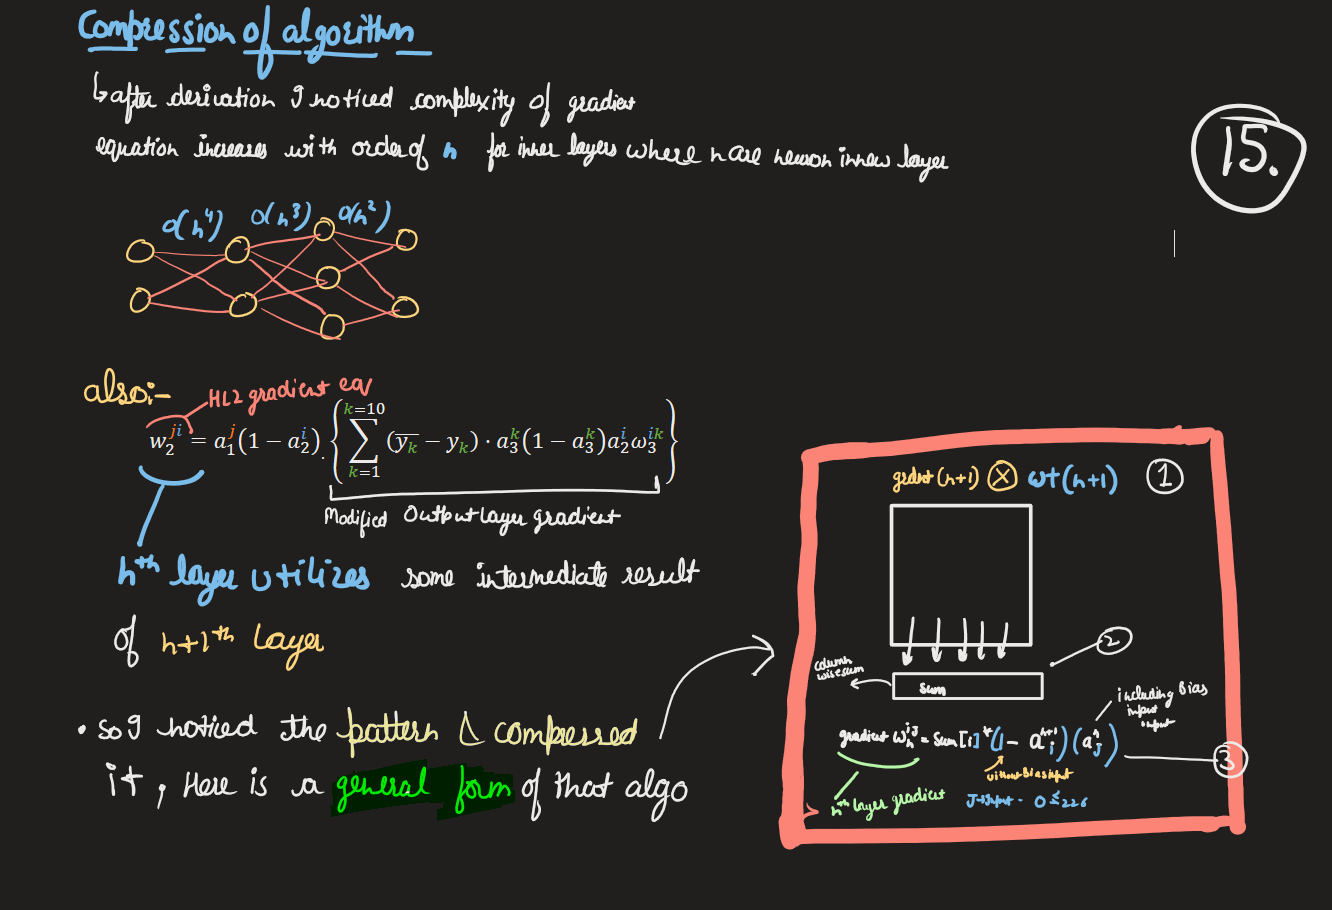 Compression of algorithm
↳ after derivation I noticed complexity of gradient
equation increases with order of n for inner layers where n are neuron in new layer
15.
O(n⁴) O(n³) O(n²)
also:-
HL2 gradient eq
w₂^{ji} = a₁^j(1 − a₂^i). { ∑_{k=1}^{k=10} (ȳₖ − yₖ) · a₃^k(1 − a₃^k)a₂^i ω₃^{ik} }
Modified Output layer gradient
nᵗʰ layer utilizes some intermediate result
of n+1ᵗʰ layer
• so I noticed the pattern & compressed
it, Here is a general form of that algo
gradent (n+1) ⊗ wt(n+1) 1
2
column
wise sum
sum
including Bias
input
gradient w_n^{ij} = sum[i] * (1 − a_i^{n+1})(a_j^n)
3
without Bias input
nᵗʰ layer gradient
J→Input - 0 ≤ 226